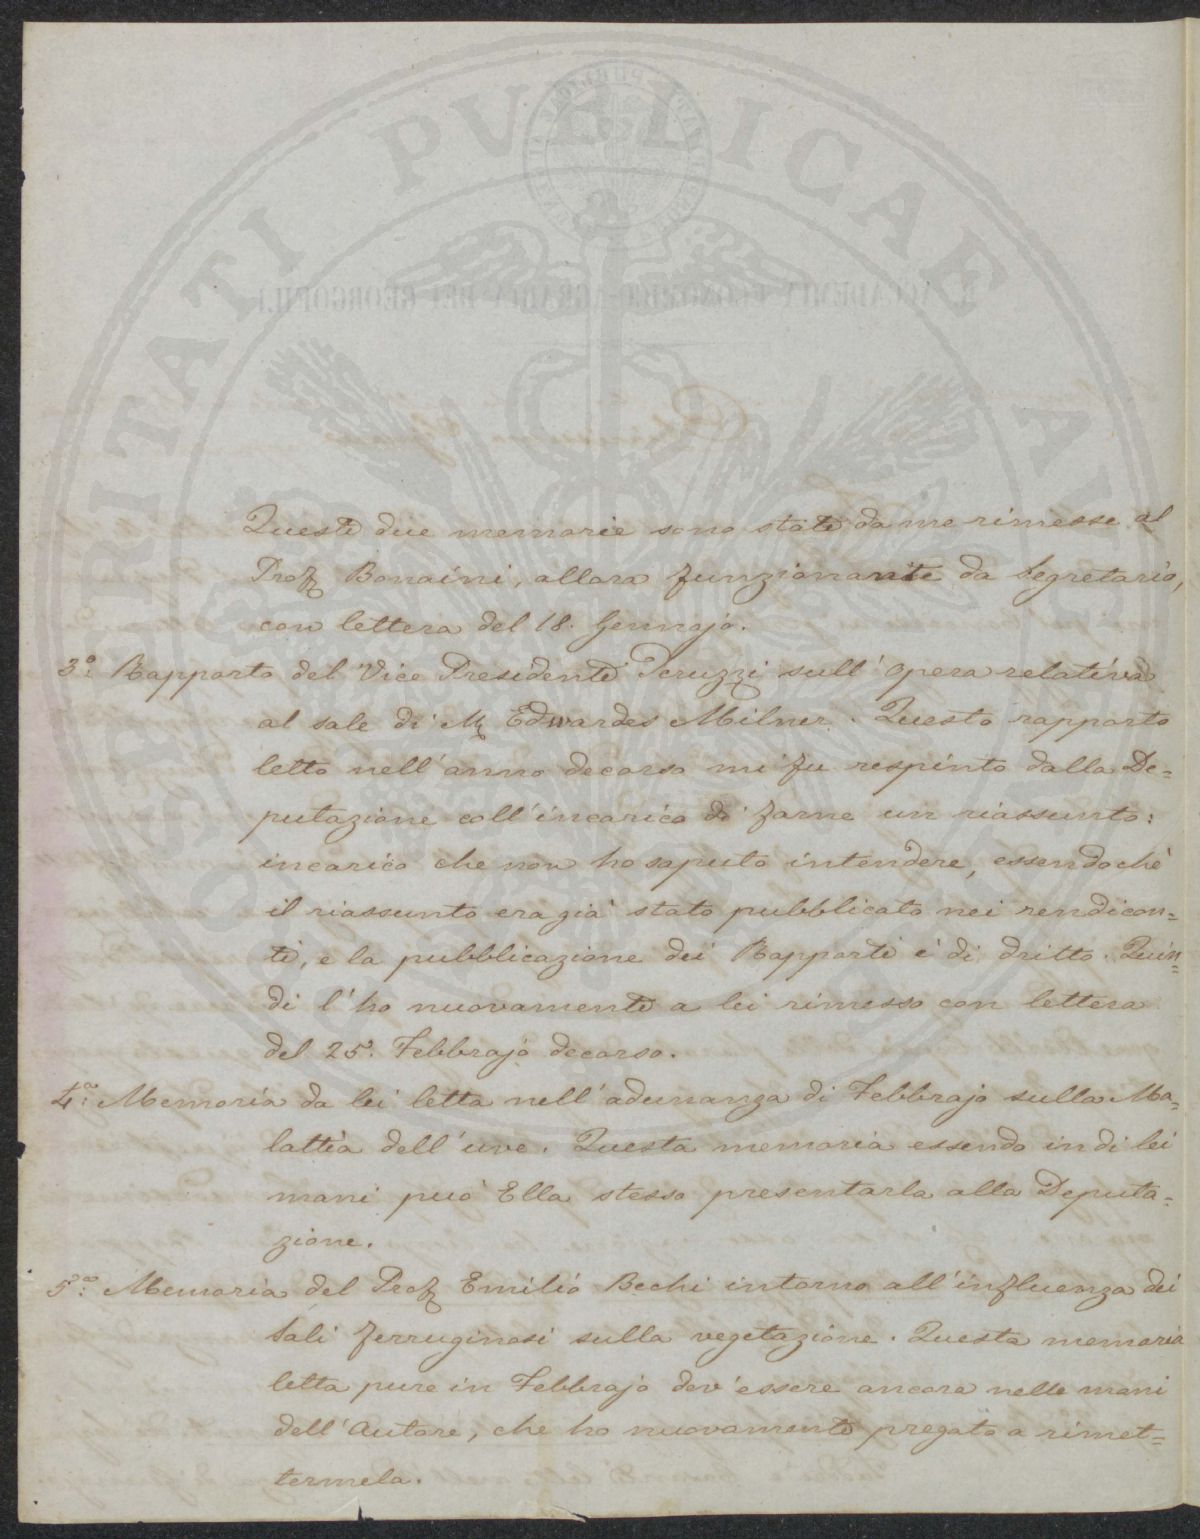 PROSPERITATI PUBLICAE AUGENDAE
Queste due memorie sono state da me rimesse al
Prof. Bonaini, allora funzionante da Segretario,
con lettera del 18. Gennajo.
3.º Rapporto del Vice Presidente Peruzzi sull'opera relativa
al sale di Mr. Edwardes Milner. Questo rapporto
letto nell'anno decorso mi fu respinto dalla De=
putazione coll'incarico di farne un riassunto:
incarico che non ho saputo intendere, essendochè
il riassunto era già stato pubblicato nei rendicon=
ti, e la pubblicazione dei Rapporti è di dritto. Quin=
di l'ho nuovamente a lei rimesso con lettera
del 25. Febbrajo decorso.
4.º Memoria da lei letta nell'adunanza di Febbrajo sulla Ma=
lattia dell'uve. Questa memoria essendo in di lei
mani può Ella stessa presentarla alla Deputa=
zione.
5.º Memoria del Prof. Emilio Bechi intorno all'influenza dei
Sali ferruginosi sulla vegetazione. Questa memoria
letta pure in Febbrajo dev'essere ancora nelle mani
dell'Autore, che ho nuovamente pregato a rimet=
termela.